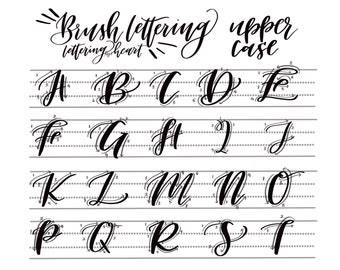 Brush lettering upper
lettering heart case
A B C D E
F G H I J
K L M N O
P Q R S T